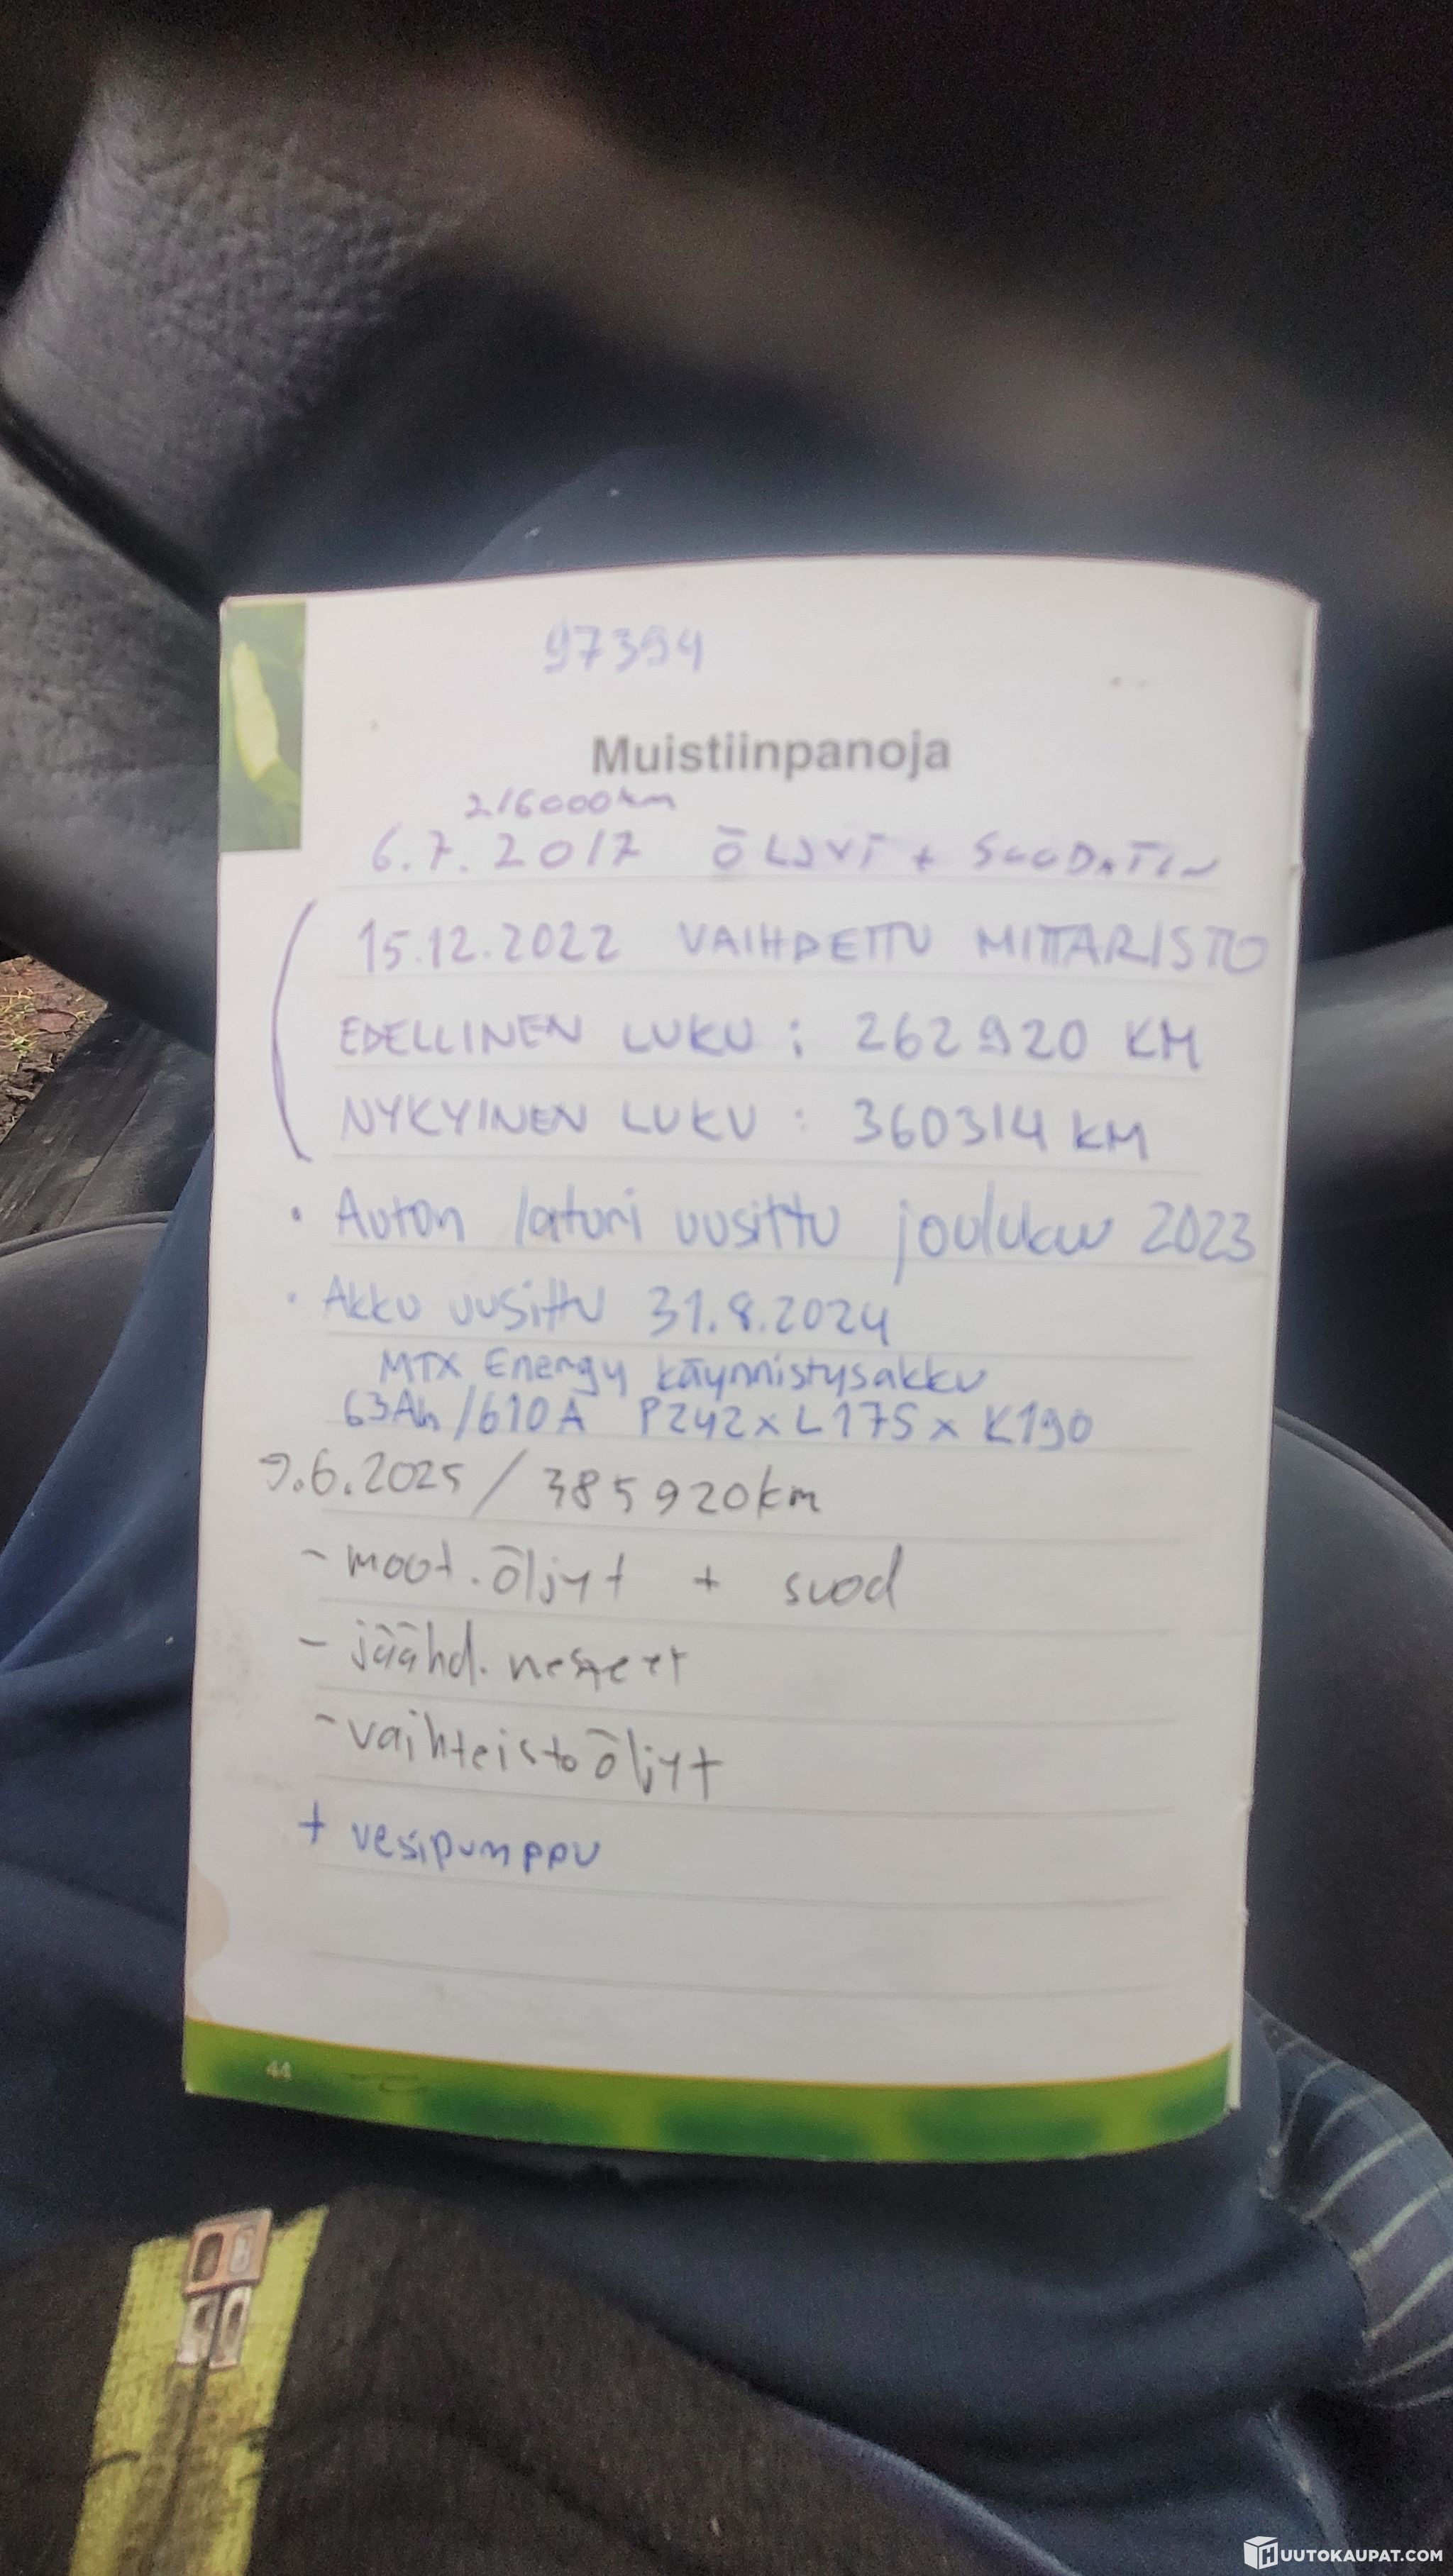 97394
Muistiinpanoja
216000km
6.7.2017 ÖLJYT + SUODATIN
15.12.2022 VAIHDETTU MITTARISTO
EDELLINEN LUKU : 262920 KM
NYKYINEN LUKU : 360314 KM
• Auton laturi uusittu joulukuu 2023
• Akku uusittu 31.8.2024
MTX Energy käynnistysakku
63Ah/610A P242xL175xK190
9.6.2025 / 385920km
- moot.öljyt + suod
- jäähd. nesteet
- vaihteistoöljyt
+ vesipumppu
44
HUUTOKAUPAT.COM